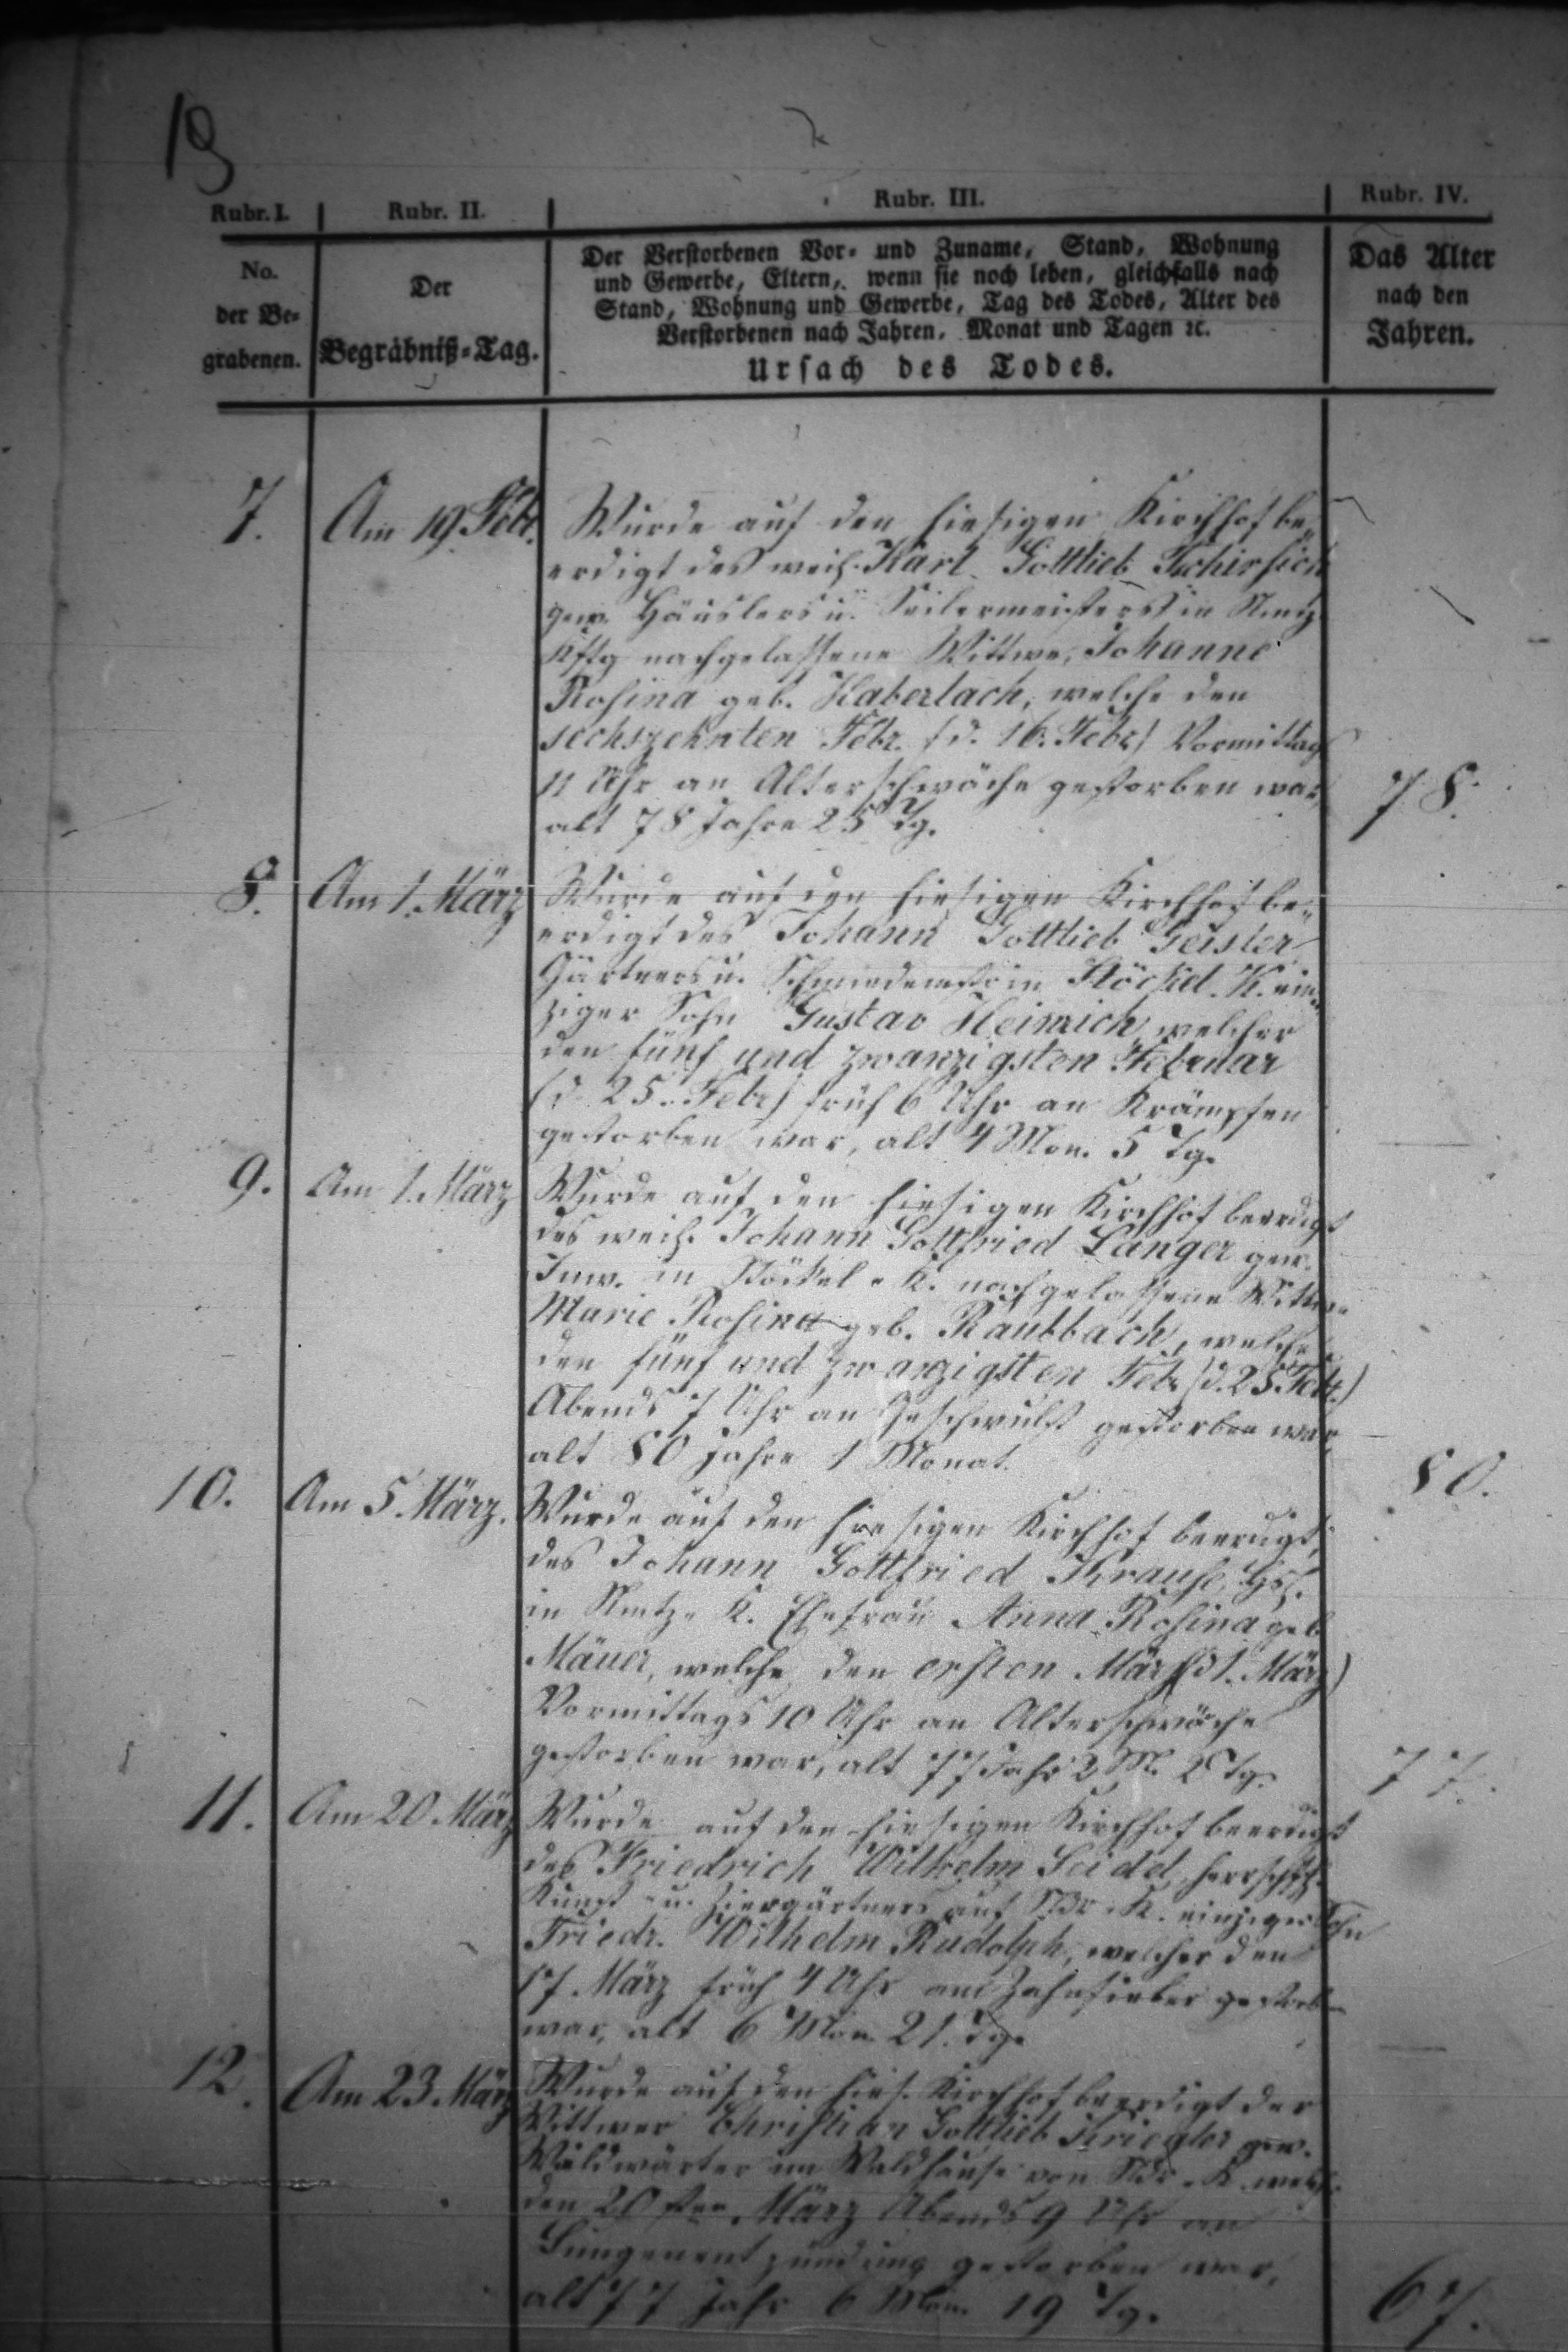 19
Rubr. I. Rubr. II. Rubr. III. Rubr. IV.
No. der Be-grabenen.
Der Begräbniß-Tag.
Der Verstorbenen Vor- und Zuname, Stand, Wohnung
und Gewerbe, Eltern, wenn sie noch leben, gleichfalls nach
Stand, Wohnung und Gewerbe, Tag des Todes, Alter des
Verstorbenen nach Jahren, Monat und Tagen ꝛc.
Ursach des Todes.
Das Alter
nach den
Jahren.
7. Am 19. Febr. Wurde auf den hiesigen Kirchhof be-
erdigt des weil. Karl Gottlieb Tschirsich
gew. Häuslers u. Seilermeisters in
nachgelassene Wittwe, Johanne
Rosina geb. Haberlach, welche den
sechszehnten Febr. (d. 16. Febr.) Vormittag
11 Uhr an Altersschwäche gestorben war
alt 78 Jahre 25 Tg. 78.
8. Am 1. März Wurde auf den hiesigen Kirchhof be-
erdigt des Johann Gottlieb Geisler
Gärtners u. Schmiedemstr in Stöckel. K. ein-
ziger Sohn Gustav Heinrich, welcher
den fünf und zwanzigsten Februar
(d. 25. Febr.) früh 6 Uhr an Krämpfen
gestorben war, alt 4 Mon. 5 Tg.
9. Am 1. März Wurde auf den hiesigen Kirchhof beerdigt
des weil. Johann Gottfried Langer gew.
Inw. in Stöckel-K. nachgelassene Wittwe
Marie Rosina geb. Raubbach, welche
den fünf und zwanzigsten Febr. (d. 25. Febr.)
Abends 7 Uhr an Geschwulst gestorben war
alt 80 Jahre 1 Monat. 80.
10. Am 5. März. Wurde auf den hiesigen Kirchhof beerdigt,
des Johann Gottfried Krause, Hsl.
in K. Ehefrau Anna Rosina geb.
Mäuer, welche den ersten März (d 1. März)
Vormittags 10 Uhr an Altersschwäche
gestorben war, alt 77 Jahr 2 M. Tg. 77.
11. Am 20. März Wurde auf den hiesigen Kirchhof beerdigt
des Friedrich Wilhelm Seidel, herrschftl.
Kunst- u. Ziergärtners auf Ndr. K. einziger Sohn
Friedr. Wilhelm Rudolph, welcher den
17. März früh 4 Uhr am Zahnfieber gestorben
war, alt 6 Mon. 21. Tg.
12. Am 23. März Wurde auf den hies. Kirchhof beerdigt der
Wittwer Christian Gottlieb Kriegler gew.
Waldwärter im Waldhause von Ndr. K. welch.
den 20sten März Abends 9 Uhr an
Lungenentzündung gestorben war,
alt 77 Jahr 6 Mon. 19 Tg. 67.